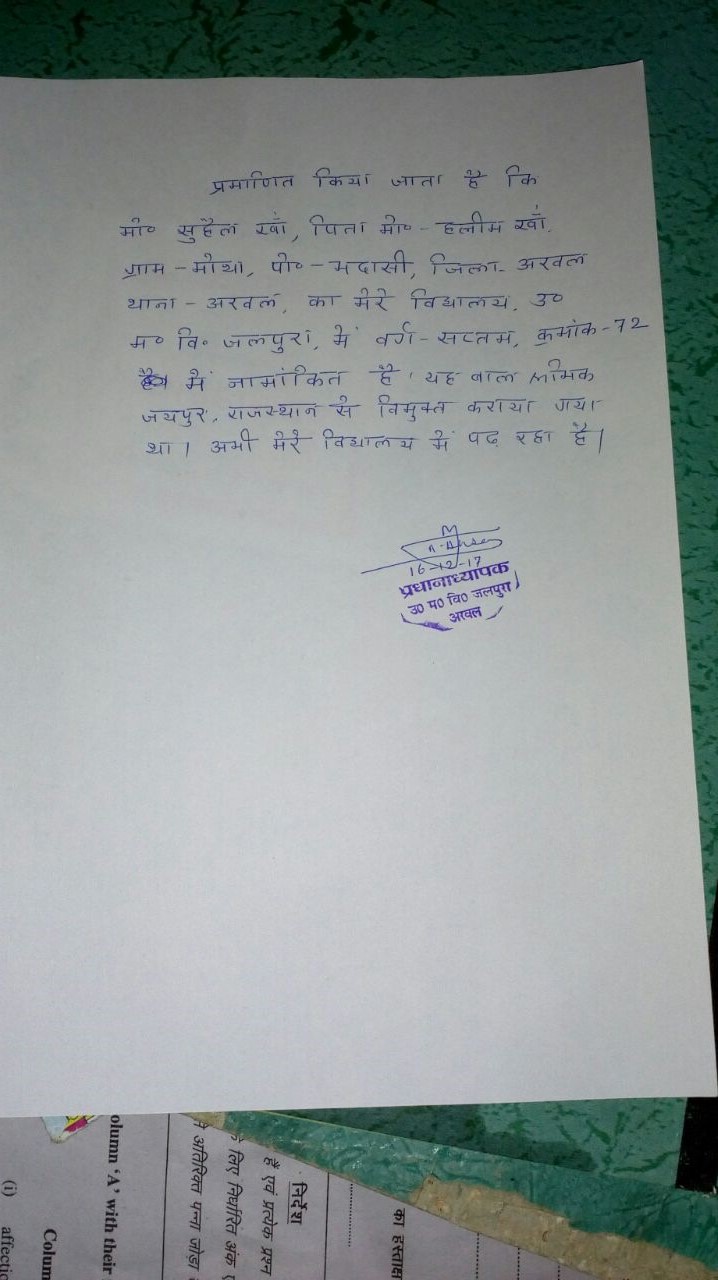 प्रमाणित किया जाता है कि
मो० सुहैल खाँ, पिता मो०-हलीम खाँ.
ग्राम-मोथा, पो०-भदासी, जिला-अरवल
थाना-अरवल, का मेरे विद्यालय, उ०
म० वि० जलपुरा, में वर्ग-सप्तम, क्रमांक-72
में नामांकित है। यह बाल श्रमिक
जयपुर, राजस्थान से विमुक्त कराया गया
था। अभी मेरे विद्यालय में पढ़ रहा है।
16-12-17
प्रधानाध्यापक
उ० म० वि० जलपुरा
अरवल
निर्देश
हैं एवं प्रत्येक प्रश्न
के लिए निर्धारित अंक
अतिरिक्त पन्ना जोड़ा
का हस्ताक्ष
olumn ‘A’ with their
Colum
(i)
affectio